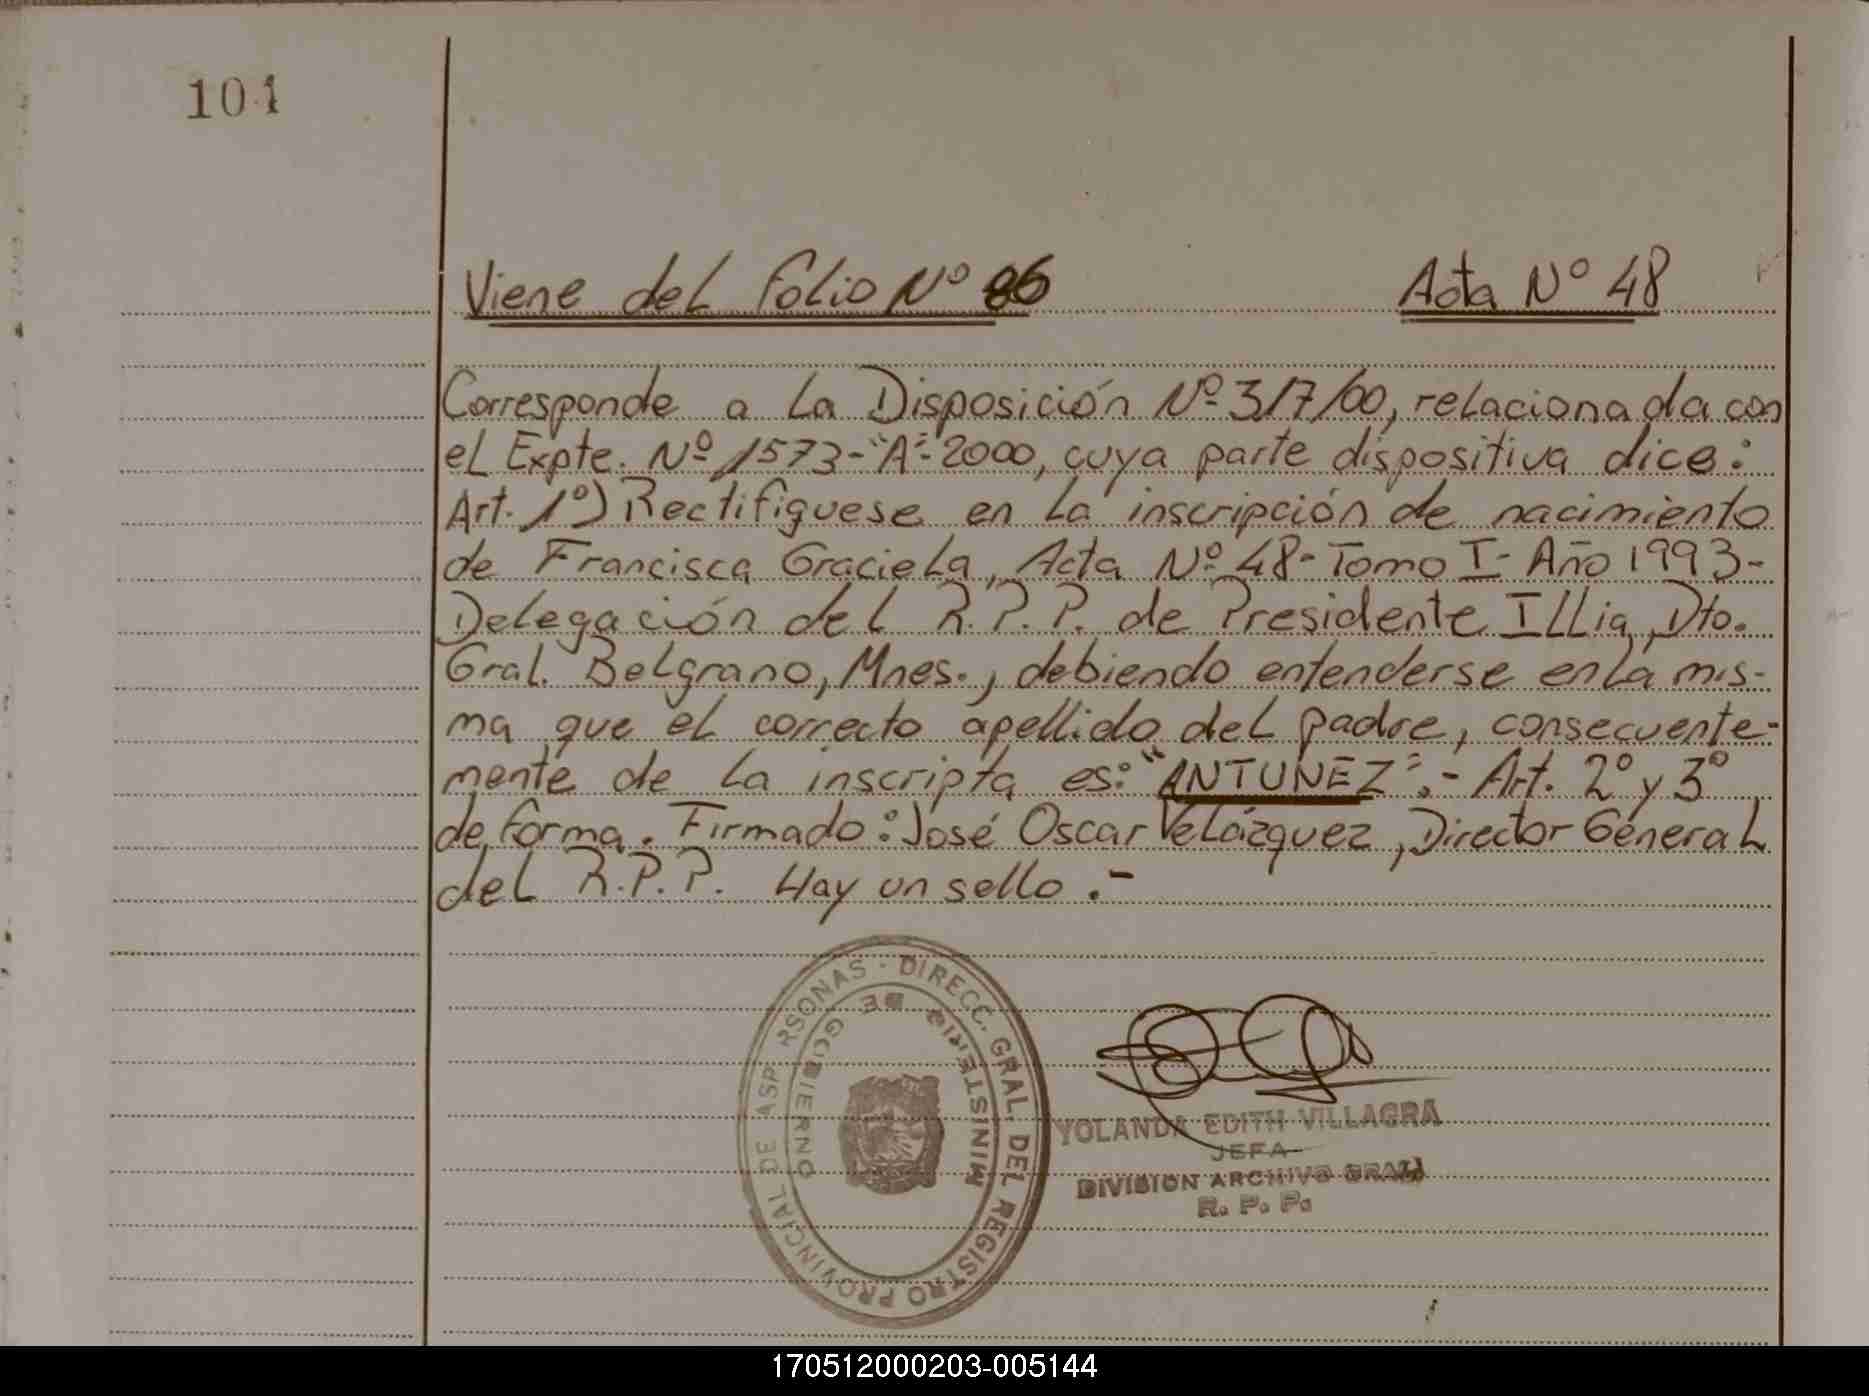 101
Viene del folio Nº 86 Acta Nº 48
Corresponde a la Disposición Nº 317/00, relacionada con
el Expte. Nº 1573-"A"-2000, cuya parte dispositiva dice:
Art. 1º) Rectifiquese en la inscripción de nacimiento
de Francisca Graciela, Acta Nº 48- Tomo I- Año 1993-
Delegación del R.P.P. de Presidente Illia, Dto.
Gral. Belgrano, Mnes., debiendo entenderse en la mis-
ma que el correcto apellido del padre, consecuente-
mente de la inscripta es: "ANTUNEZ".- Art. 2º y 3º
de forma. Firmado: José Oscar Velázquez, Director General
del R.P.P. Hay un sello.-
DIRECC. GRAL. DEL REGISTRO PROVINCIAL DE
RSONAS
MINISTERIO DE GOBIERNO
YOLANDA EDITH VILLAGRA
JEFA
DIVISION ARCHIVO GRAL
R. P. P.
170512000203-005144